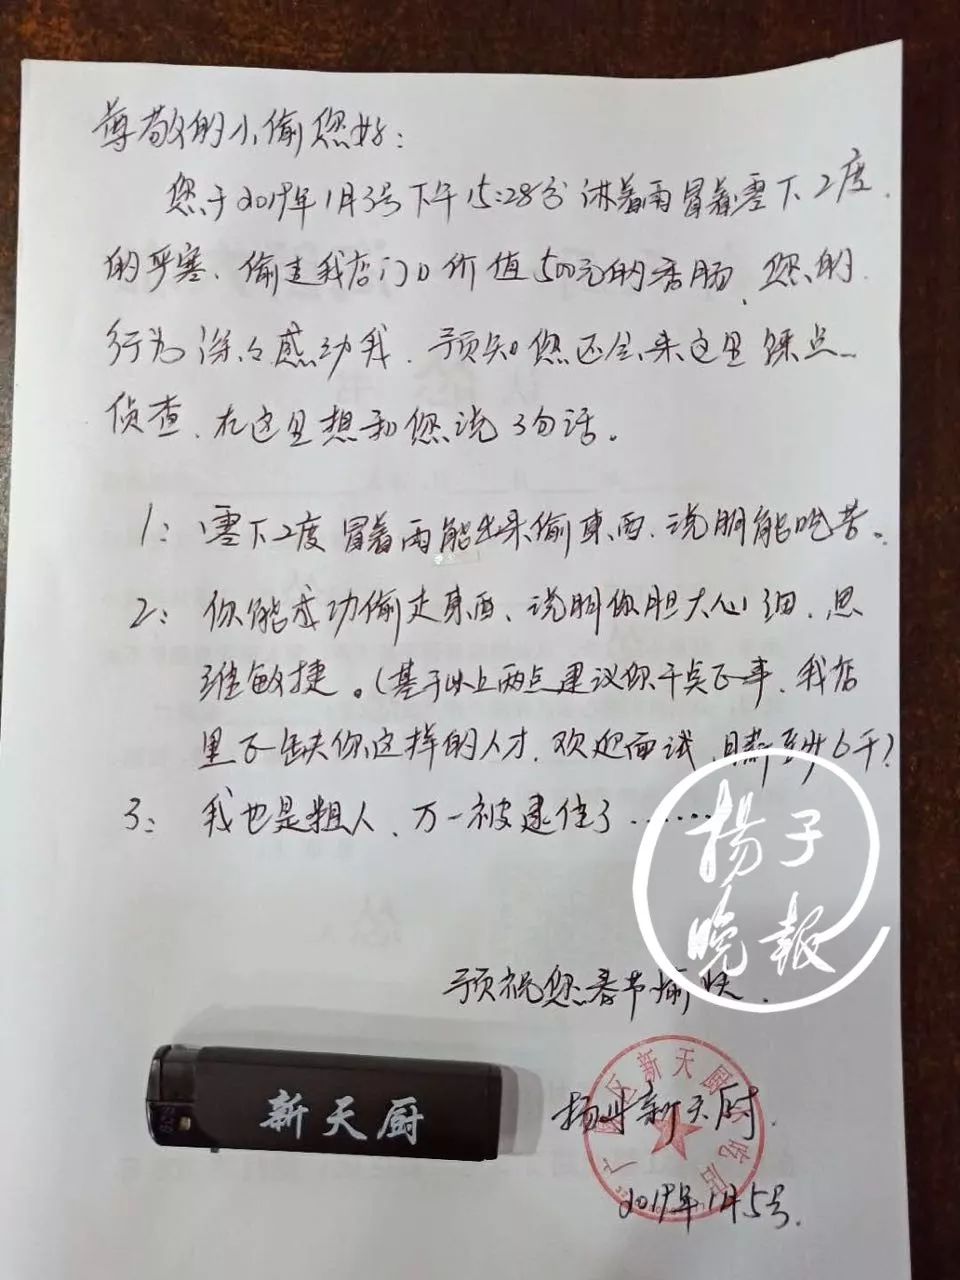 尊敬的小偷您好：
您于2019年1月3号下午15:28分淋着雨冒着零下2度.
的严寒、偷走我店门口价值500元的香肠、您的
行为深々感动我、预知您还会来这里踩点
侦查、在这里想和您说3句话。
1：零下2度冒着雨能出来偷东西、说明能吃苦。
2：你能成功偷走东西、说明你胆大心细、思
维敏捷。(基于以上两点建议你干点正事、我店
里正缺你这样的人才、欢迎面试、月薪至少6千?
3：我也是粗人、万一被逮住了……
扬子
晚报
预祝您春节愉快.
新天厨
扬州新天厨.
区新天厨小吃店
2019年1月5号.